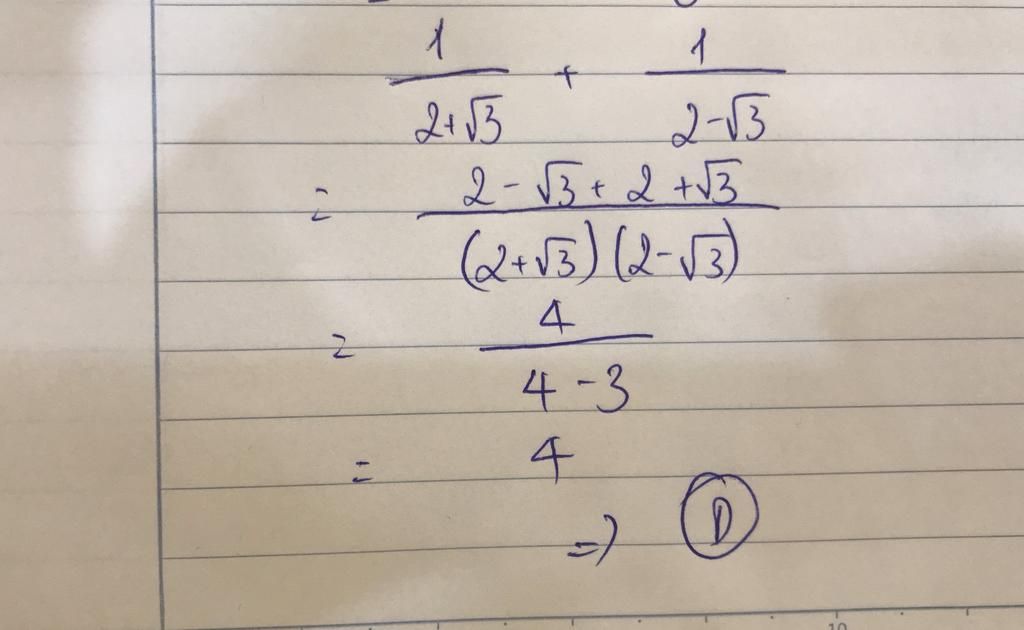 1/(2+√3) + 1/(2-√3)
= (2 - √3 + 2 + √3)/((2+√3)(2-√3))
= 4/(4 - 3)
= 4
=> D
10